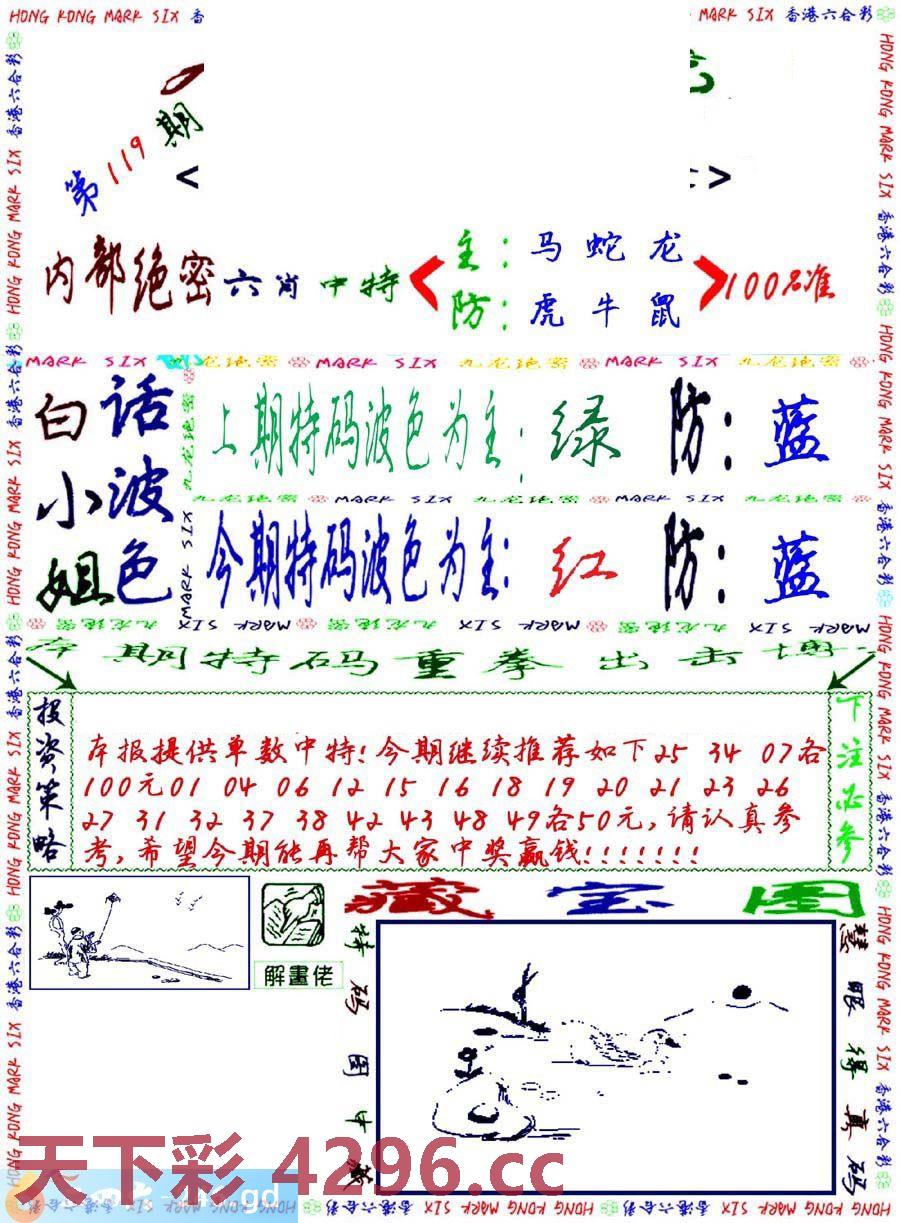 HONG KONG MARK SIX 香
MARK SIX 香港六合彩
第119期
< >
内部绝密六肖中特
主：马蛇龙
防：虎牛鼠
100%准
MARK SIX 九龙绝密 MARK SIX 九龙绝密 MARK SIX 九龙绝密
白小姐
话波色
上期特码波色为主：绿 防：蓝
九龙绝密 MARK SIX 九龙绝密 MARK SIX 九龙绝密
今期特码波色为主：红 防：蓝
MARK SIX 九龙绝密 MARK SIX 九龙绝密 MARK SIX
期特码重拳出击
投资策略
本报提供单数中特！今期继续推荐如下25 34 07各
100元01 04 06 12 15 16 18 19 20 21 23 26
27 31 32 37 38 42 43 48 49各50元，请认真参
考，希望今期能再帮大家中奖赢钱！！！！！！！
下注必参
解畫佬
藏宝图
特码图中藏
慧眼得真码
天下彩 4296.cc
HONG KONG MARK SIX 香港六合彩